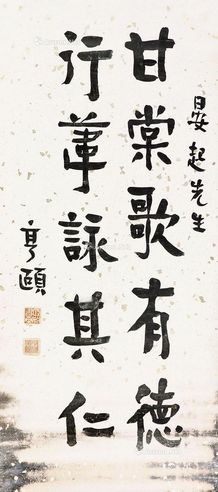 晏起先生
甘棠歌有德
行葦詠其仁
亨頤